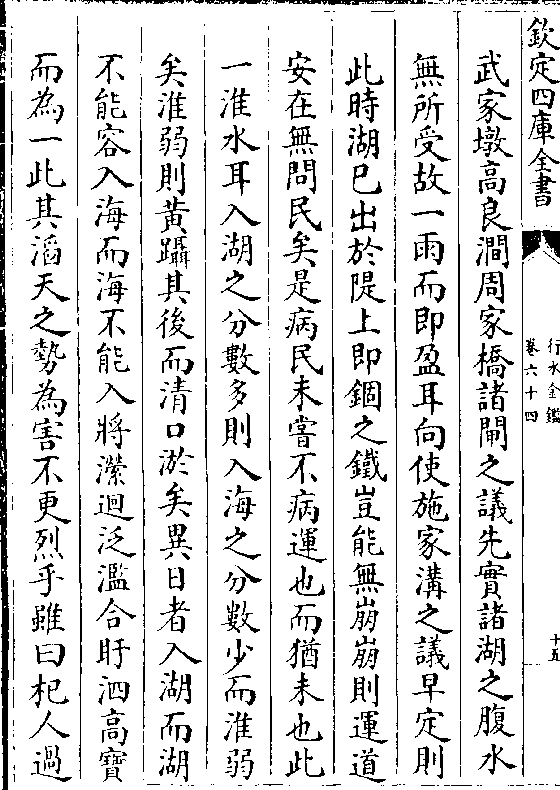 欽定四庫全書
行水金鑑
卷六十四
十五
武家墩高良澗周家橋諸閘之議先實諸湖之腹水
無所受故一雨而即盈耳向使施家溝之議早定則
此時湖已出於隄上即錮之鐵豈能無崩崩則運道
安在無問民矣是病民未嘗不病運也而猶未也此
一淮水耳入湖之分數多則入海之分數少而淮弱
矣淮弱則黃躡其後而清口淤矣異日者入湖而湖
不能容入海而海不能入將瀠迴泛濫合盱泗高寶
而為一此其滔天之勢為害不更烈乎雖曰杞人過